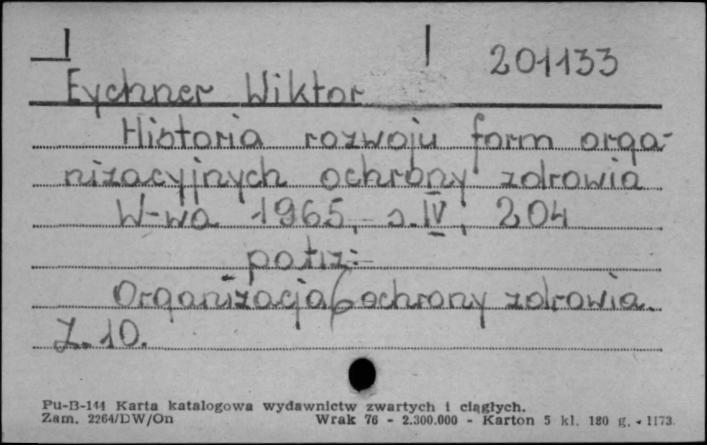 201133
Eychner Wiktor
Historia rozwoju form orga-
nizacyjnych ochrony zdrowia
W-wa 1965, s. IV, 204
patrz:
Organizacja ochrony zdrowia.
Z. 10.
Pu-B-144 Karta katalogowa wydawnictw zwartych i ciągłych.
Zam. 2264/DW/On Wrak 76 - 2.300.000 - Karton 5 kl. 180 g. - 1173.